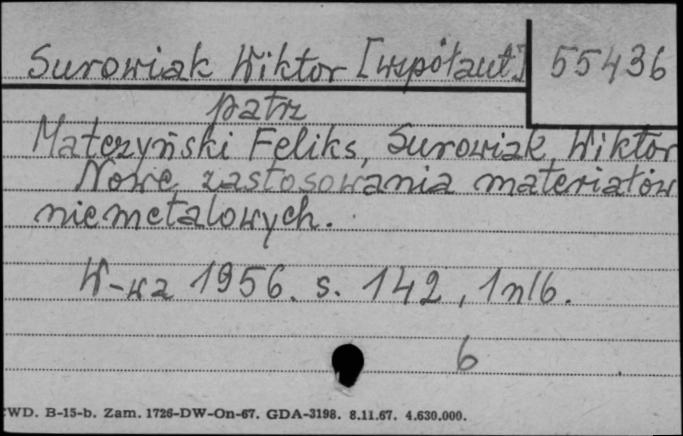 Surowiak Wiktor [współaut.] 55436
patrz
Matczyński Feliks, Surowiak, Wiktor
Nowe zastosowania materiałów
niemetalowych.
W-wa 1956. s. 142, 1 nlb.
6
WD. B-15-b. Zam. 1726-DW-On-67. GDA-3198. 8.11.67. 4.630.000.